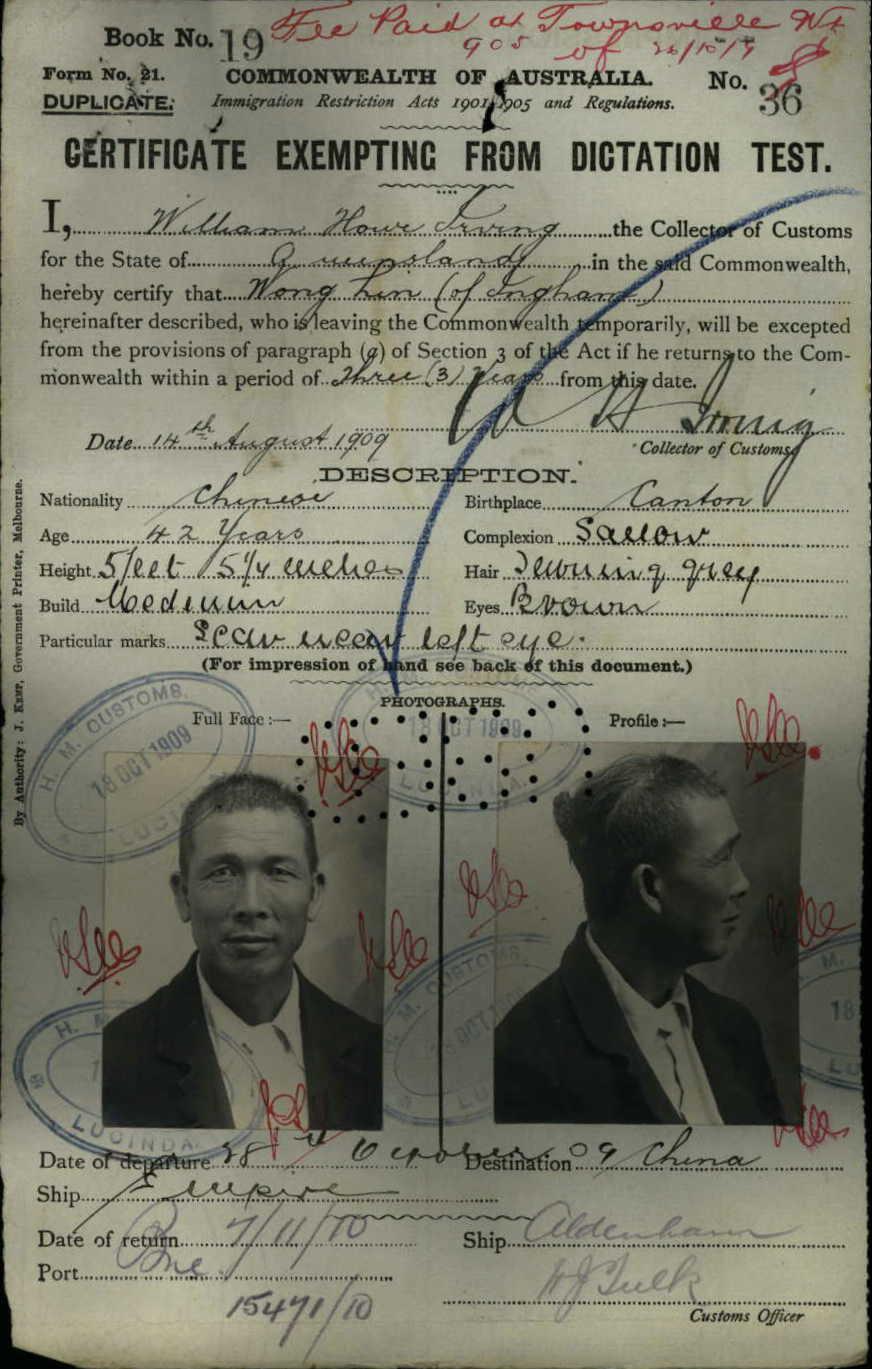 Fee Paid at Townsville
Book No. 19
905 of 26/10/9
Form No. 21.
COMMONWEALTH OF AUSTRALIA.
No. 36
DUPLICATE.
Immigration Restriction Acts 1901-1905 and Regulations.
CERTIFICATE EXEMPTING FROM DICTATION TEST.
I, William Howe Irving the Collector of Customs
for the State of Queensland in the said Commonwealth,
hereby certify that Wong Lin (of Ingham)
hereinafter described, who is leaving the Commonwealth temporarily, will be excepted
from the provisions of paragraph (a) of Section 3 of the Act if he returns to the Com-
monwealth within a period of Three (3) Years from this date.
W H Irving
Date 14th August 1909
Collector of Customs
DESCRIPTION.
Nationality Chinese Birthplace Canton
Age 42 Years Complexion Sallow
Height 5 feet 5 1/4 inches Hair Turning grey
Build Medium Eyes Brown
Particular marks Scar near left eye.
(For impression of hand see back of this document.)
PHOTOGRAPHS.
Full Face :— Profile :—
H. M. CUSTOMS.
18 OCT 1909
LUCINDA.
18 OCT 1909
LUCINDA.
H. M. CUSTOMS
18 OCT
LU
H. M.
18
LU
H. M.
LUCINDA.
Date of departure 28 October 09 Destination China
Ship Empire
Date of return 7/11/10 Ship Aldenham
Port Bne
15471/10
Customs Officer
By Authority: J. Kemp, Government Printer, Melbourne.